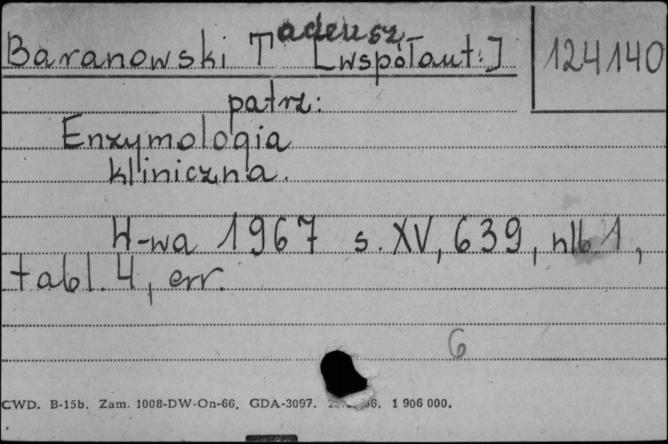 Baranowski Tadeusz
[współaut.]
124140
patrz:
Enzymologia
kliniczna.
W-wa 1967 s. XV, 639, nlb 1,
tabl. 4, err.
6
CWD. B-15b. Zam. 1008-DW-On-66. GDA-3097. 1 906 000.